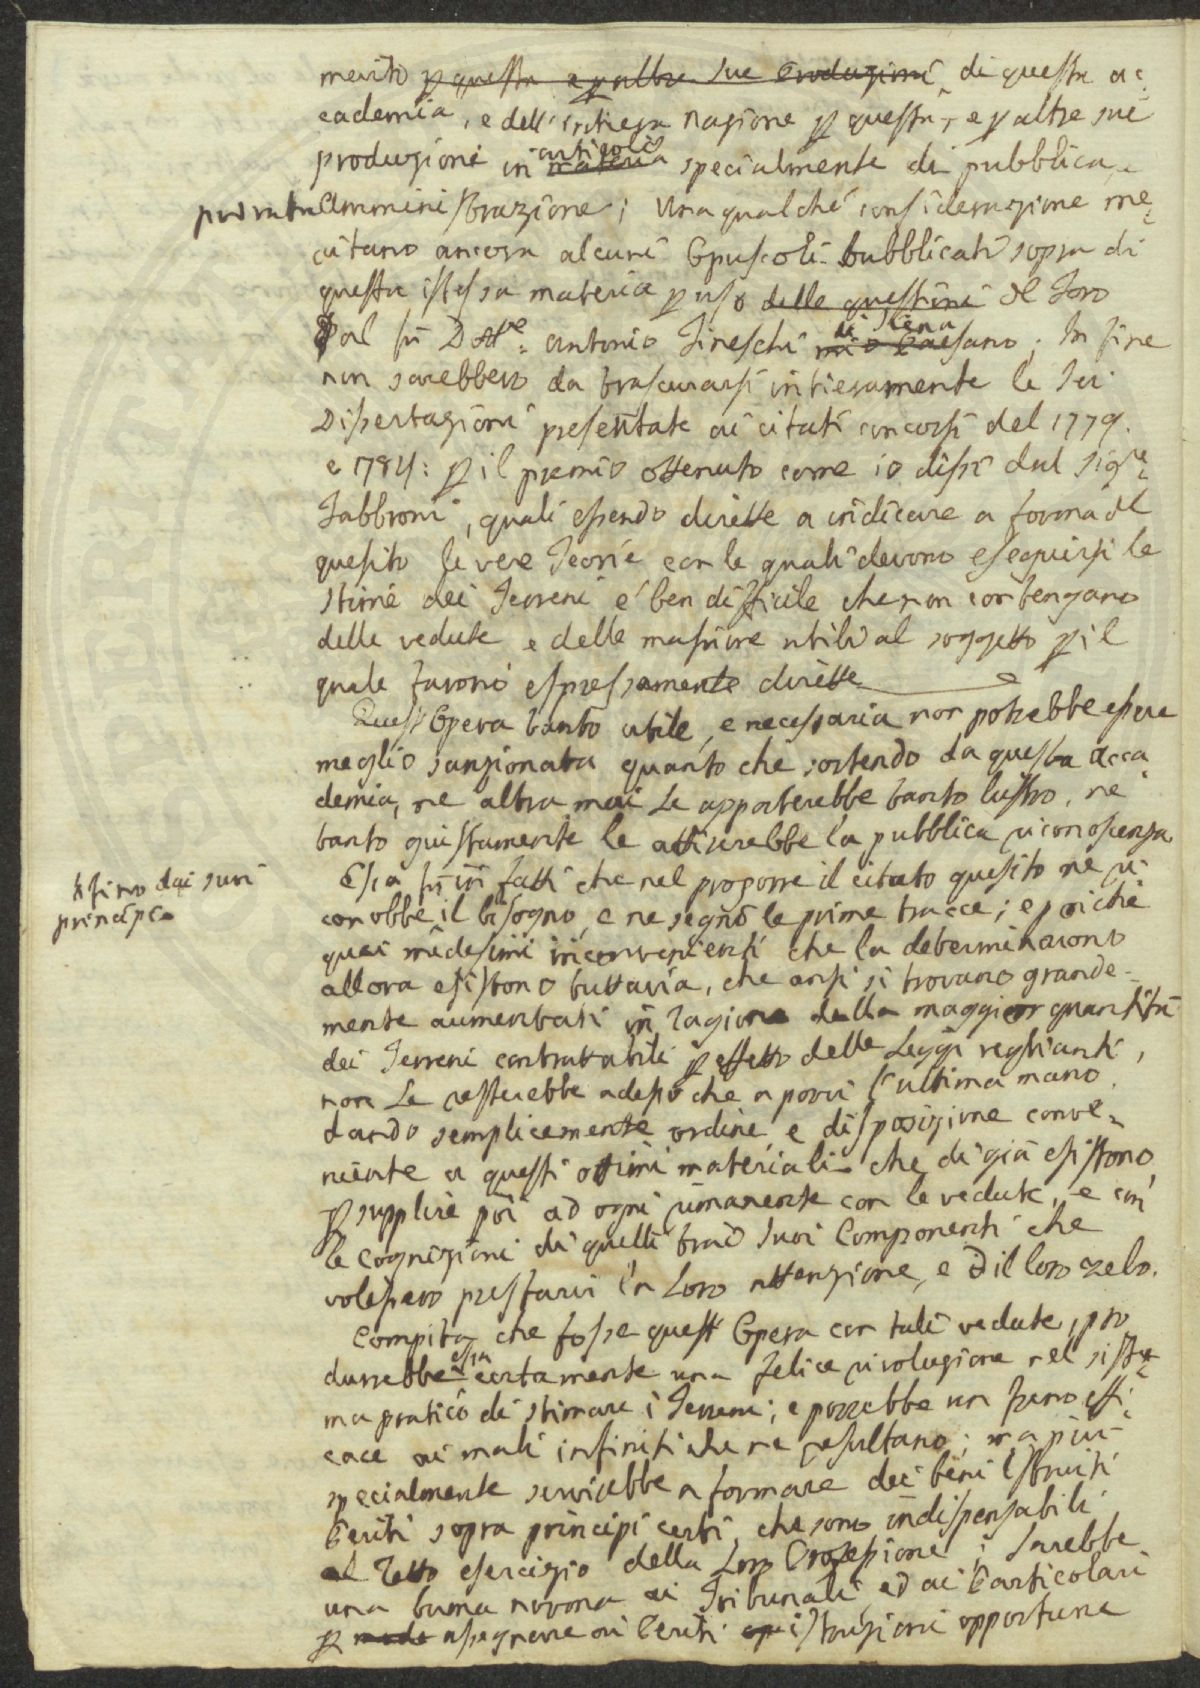 merito p questa e p altre sue Produzioni di questa ac=
cademia, e dell'intiera nazione p questa, e p altre sue
produzioni in materia articoli specialmente di pubblica
privata Amministrazione; Una qualche considerazione me=
ritano ancora alcuni Opuscoli pubblicati sopra di
questa istessa materia p uso delle questioni del Foro
Dal fù Dott.re Antonio Fineschi di Siena; In fine
non sarebbero da trascurarsi intieramente le sei
Dissertazioni presentate ai citati concorsi del 1779.
e 1784: p il premio ottenuto come io dissi dal sigre
Fabbroni, quali essendo dirette a indicare a forma del
quesito le vere Teorie con le quali devono eseguirsi le
stime dei Terreni é ben difficile che non contengano
delle vedute e delle massime utili al soggetto p il
quale furono espressamente dirette
Quest'Opera tanto utile, e necessaria non potrebbe essere
meglio sanzionata quanto che sortendo da questa Acca
demia, ne altra mai Le apporterebbe tanto lustro, ne
tanto giustamente le attirerebbe la pubblica riconoscenza
fino dai suoi
principi
Essa fù in fatti che nel proporre il citato quesito ne ri
conobbe il bisogno, e ne segnò le prime tracce; e poiché
quei medesimi inconvenienti che la determinarono
allora esistono tuttavia, che anzi si trovano grande=
mente aumentati in ragione della maggior quantità
dei Terreni contrattabili p effetto delle Leggi veglianti,
non Le resterebbe adesso che a porvi l'ultima mano
dando semplicemente ordine, e disposizione conve=
niente a questi ottimi materiali che di già esistono
p supplire poi ad ogni rimanente con le vedute, e con
le cognizioni di quelli trai suoi Componenti che
volessero prestarvi la Loro attenzione, e il loro zelo.
Compita che fosse quest'Opera con tali vedute, pro
durrebbe essa certamente una felice rivoluzione nel siste=
ma pratico di stimare i Terreni; e porrebbe un freno effi
cace ai mali infiniti che ne resultano; ma più
specialmente servirebbe a formare dei beni istruiti
Periti sopra principi certi, che sono indispensabili
al retto esercizio della Loro Professione; Sarebbe
una buona norma ai Tribunali, ed ai Particolari
p modo assegnare ai Periti istruzioni opportune